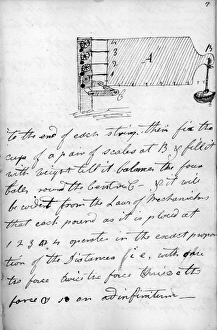 7
4
3
2
1
A
B
C
to the end of each string. then fix the
cup of a pair of scales at B. & fill it
with weight till it balances the four
bales, round the C & it will
be evident from the Law of Mechanics
that each pound as it is placed at
1 2 3 or 4 operate in the exact propor
tion of the Distances i.e, with one
the force twice the force thrice the
force & so on ad infinitum —